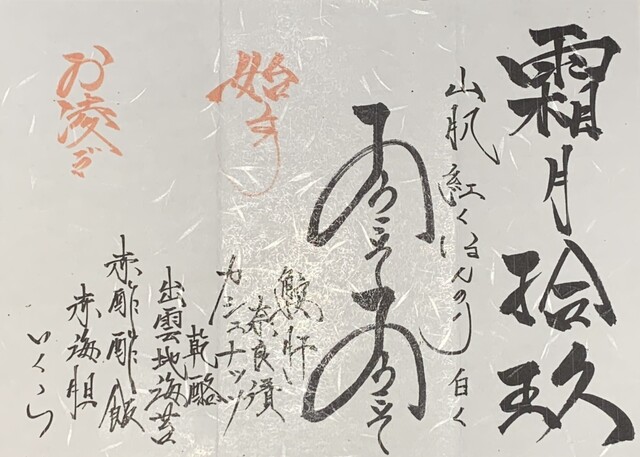 霜月拾玖
山肌紅くほんのり白く
始まり
鮟肝
奈良漬
カシュナッツ
乾酪
出雲地海苔
お凌ぎ
赤酢酢飯
赤海胆
いくら